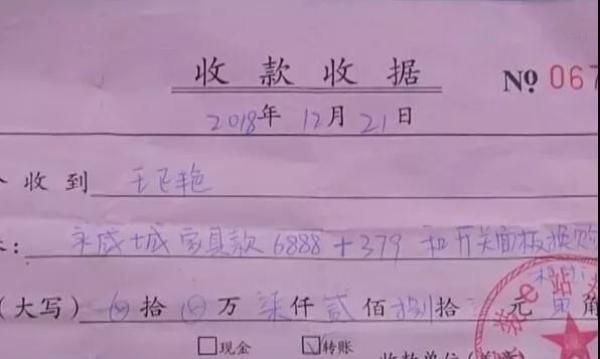 收款收据
№ 067
2018年 12月 21日
收到 王飞艳
永威城家具款 6888+379 和开关面板换购
(大写) ⊗ 拾 ⊗ 万 柒 仟 贰 佰 捌 拾 元 角
□现金 ☑转账
收款单位